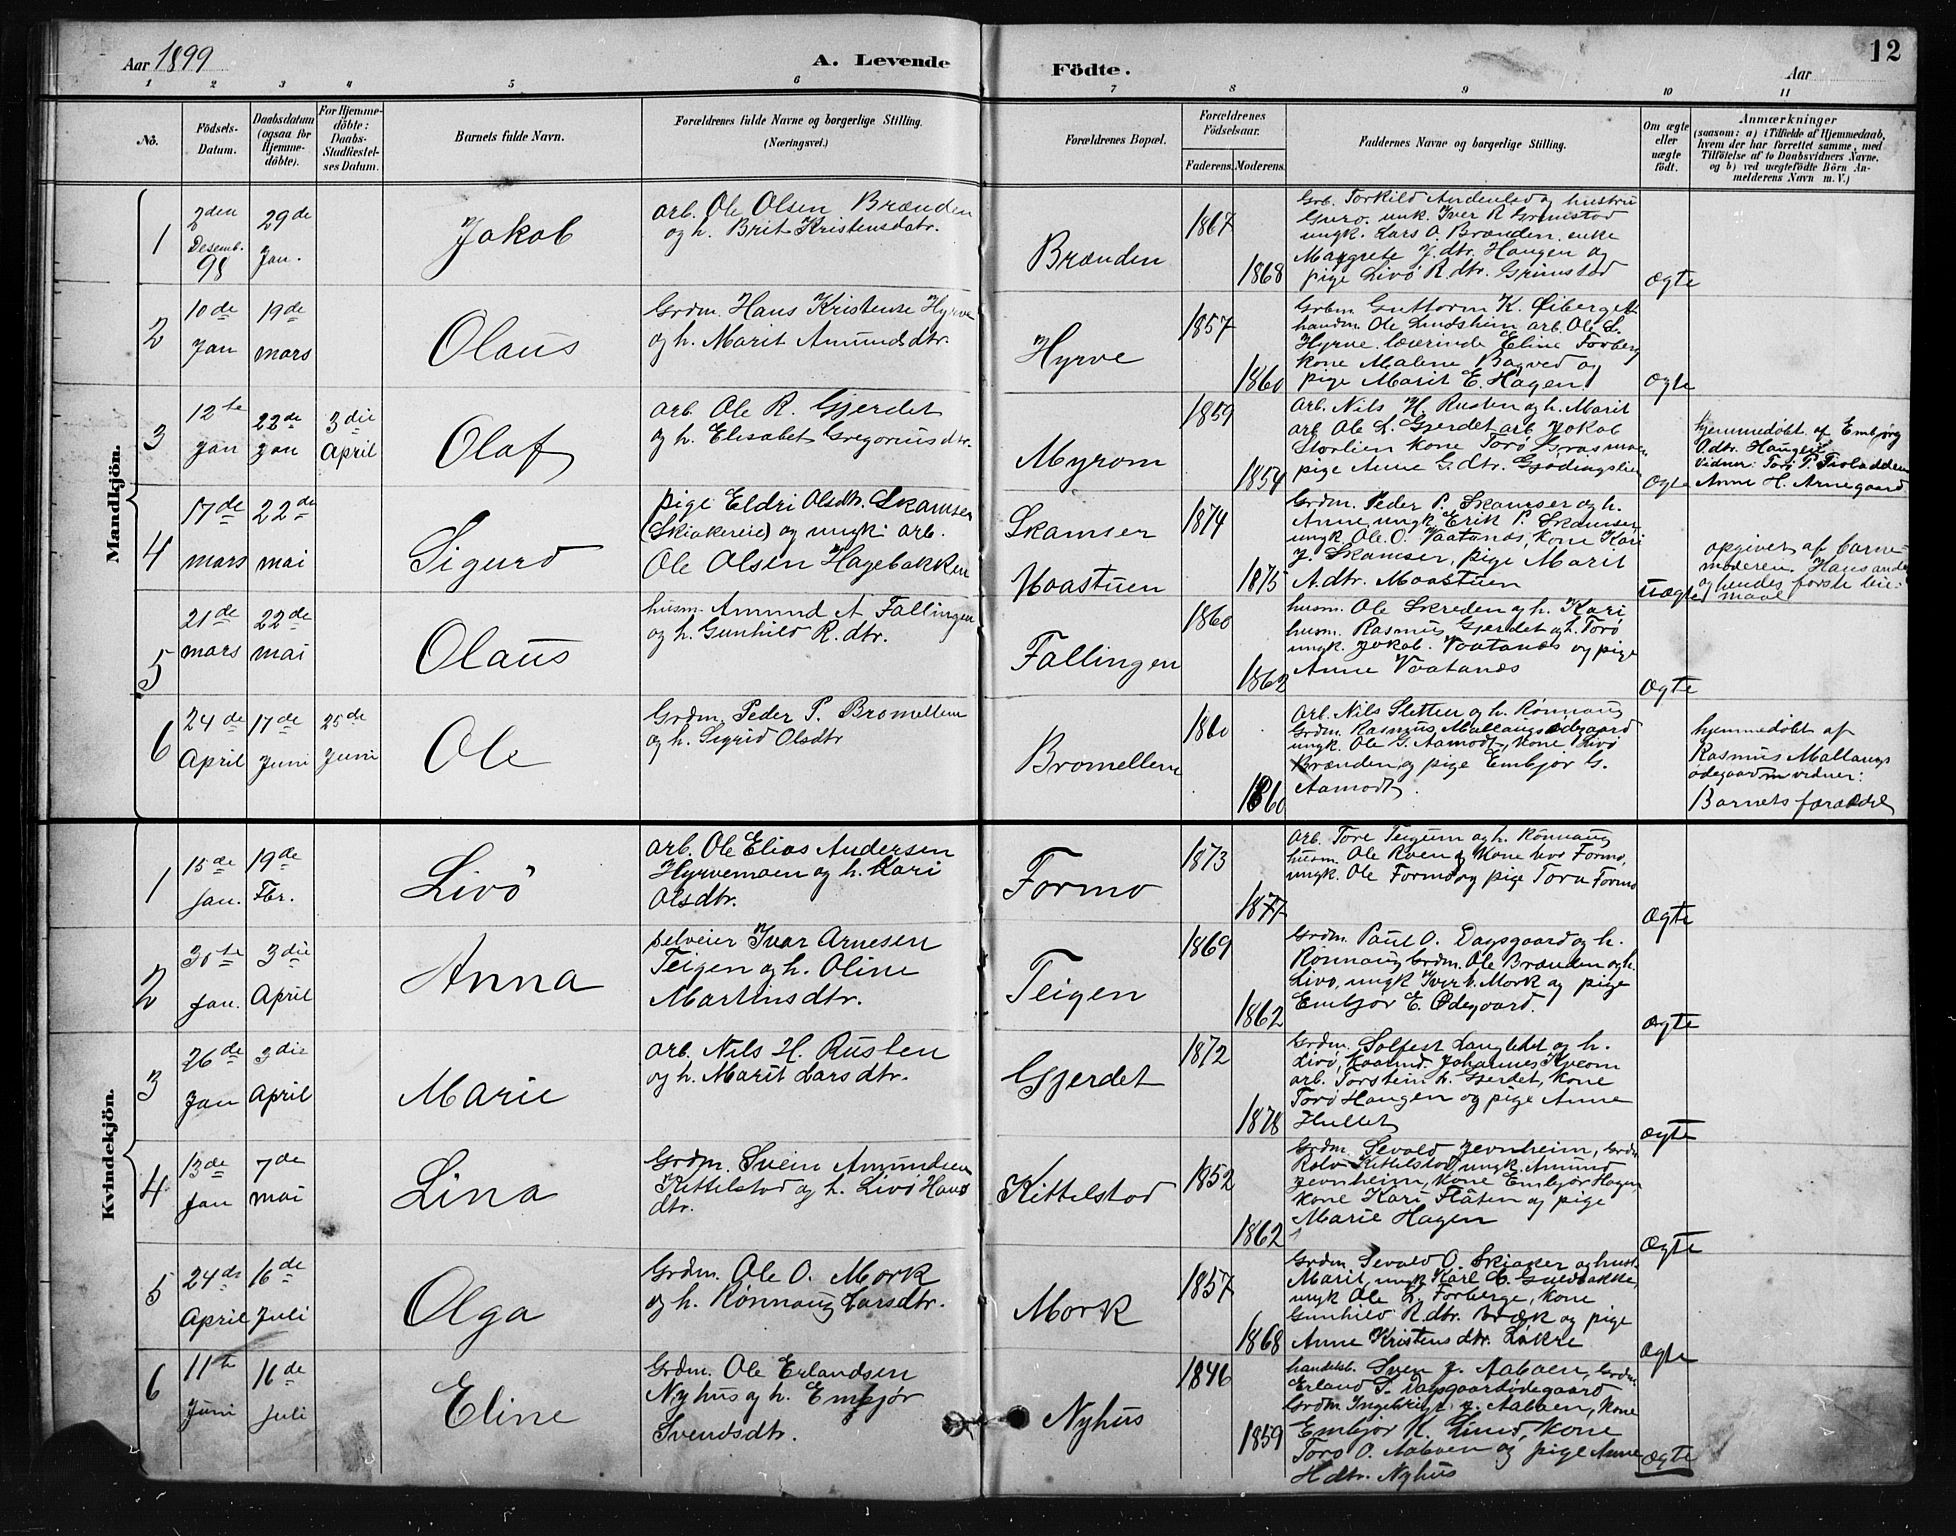 Aar 1899
A. Levende
Födte.
Aar
12
1 2 3 4 5 6 7 8 9 10 11
No.
Födsels-
Datum.
Daabsdatum
(ogsaa for
Hjemme-
döbte).
For Hjemme-
döbte:
Daabs-
Stadfæstel-
ses Datum.
Barnets fulde Navn.
Forældrenes fulde Navne og borgerlige Stilling.
(Næringsvei.)
Forældrenes Bopæl.
Forældrenes
Födselsaar.
Faderens.
Moderens.
Faddernes Navne og borgerlige Stilling.
Om ægte
eller
uægte
födt.
Anmærkninger
(saasom: a) i Tilfælde af Hjemmedaab,
hvem der har forrettet samme, med
Tilföielse af to Daabsvidners Navne,
og b) ved uægtefödte Börn An-
melderens Navn m. V.)
Mandkjön.
1
2den
Desemb.
98
29de
Jan.
Jakob
arb. Ole Olsen Brænden
og h. Brit Kristensdatr.
Brænden
1867
1868
hustru
Guro. unk. Iver R Grimstad
ungk. Lars O. Brænden. enke
Margrete J. dtr. Haugen og
pige Livö R. dtr. Grimstad
ægte
2
10de
Jan
19de
mars
Olaus
Grdm. Hans Kristense Hyrve
og h. Marit Amundsdtr.
Hyrve
1857
1860
Guttorm K.
Ole Lindsheim arb. Ole L.
Hyrve. lærerinde Eline Forberg
kone Malene Bagved og
pige Marit E. Hagen.
ægte
3
12te
Jan
22de
Jan
3die
April
Olaf
arb. Ole R. Gjerdet
og h. Elisabet Gregoriusdtr.
Myrom
1859
1854
Arb. Nils H. Rusten og h. Marit
arb Ole L. Gjerdet arb. Jakob
Storlien kone Torö
pige Anne G. dtr.
ægte
hjemmedöbt af Embjörg
O.dtr. Haugen
vidner: Torö P.
Anne H. Arnegaard
4
17de
mars
22de
mai
Sigurd
pige Eldri Olsdtr. Skamser
(Skiakereie) og ungk. arb.
Ole Olsen Hagebakken
Skamser
Moastuen
1874
1875
Grdm. Peder P. Skamser og h.
Anne, ungk Erik P. Skamser
ungk. Ole O. Vaatanes, kone Kari
J. Skamser, pige Marit
A. dtr. Moastuen
uægte
opgivet af barne-
moderen. Hans andet
og hendes förste leier-
maal
5
21de
mars
22de
mai
Olaus
husm. Amund A Fallingen
og h. Gunhild R. dtr.
Fallingen
1860
1862
husm. Ole Skreden og h. Kari
husm. Rasmus Gjerdet og h. Torö
ungk. Jakob. Vaatanes og pige
Anne Vaatanes
ægte
6
24de
April
17de
Juni
25de
Juni
Ole
Grdm. Peder P. Bromellem
og h. Sigrid Olsdtr
Bromellem
1860
1860
Arb. Nils Sletten og h. Rönnaug
Grdm. Rasmus Mallangsödegaard
ungk. Ole G. Aamodt, kone Livö
Brænden og pige Embjör G.
Aamodt.
hjemmedöbt af
Rasmus Mallangs
ödegaard vidner:
Barnets forældre
Kvindekjön.
1
15de
Jan.
19de
Fbr.
Livö
arb. Ole Elias Andersen
Hyrvemoen og h. Kari
Olsdtr.
Formo
1873
1877
arb. Tore Teigum og h. Rönnaug
husm. Ole Roen og kone Livö Formo,
ungk. Ole Formo og pige Tora Formo
ægte
2
30te
Jan.
3die
April
Anna
selveier Ivar Arnesen
Teigen og h. Oline
Martinsdtr.
Teigen
1869
1862
Grdm. Paul O. Dagsgaard og h.
Rönnaug Grdm. Ole Brænden og h.
Livö, ungk Iver h. Mork og pige
Embjör E. Ödegaard.
ægte
3
26de
Jan
3die
April
Marie
arb. Nils H. Rusten
og h. Marit Larsdtr.
Gjerdet
1872
1878
Grdm. Solfest og h.
Livö, Johannes
arb. Torstein L. Gjerdet, kone
Torö Haugen og pige Anne
Hullet
ægte
4
13de
Jan
7de
mai
Lina
Grdm. Svein Amundsen
Kittelstad og h. Livö Hans
dtr.
Kittelstad
1852
1862
Grdm. Sevald Jevnheim, Grdm
Rolv Kittelstad, ungk. Amund
Jevnheim, kone Embjör Hagen,
kone Kari Flåten og pige
Marie Hagen
ægte
5
24de
April
16de
Juli
Olga
Grdm. Ole O. Mork
og h. Rönnaug Larsdtr.
Mork
1857
1868
Grdm Sevald O. Skiaker og hust.
Marit, ungk Karl
ungk Ole L. Forberge, kone
Gunhild R. dtr. og pige
Anne Kristensdtr. Lökre
ægte
6
11te
Juni
16de
Juli
Eline
Grdm. Ole Erlandsen
Nyhus og h. Embjör
Svendsdtr.
Nyhus
1846
1859
handelsb. Sven J. Aaboen, Grdm.
Erland S. Dagsgaardödegaard
Grdm. Ingebrigt J. Aaboen, kone
Embjör K. Lund, kone
Torö O. Aaboen og pige Anne
H dtr. Nyhus
ægte